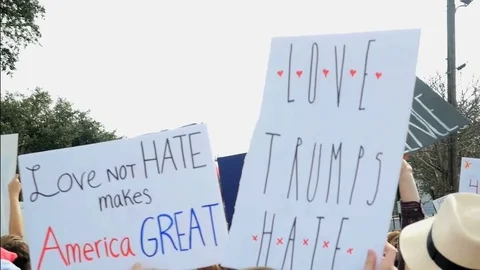 Love NOT HATE
makes
America GREAT
LOVE
TRUMPS
HATE
4